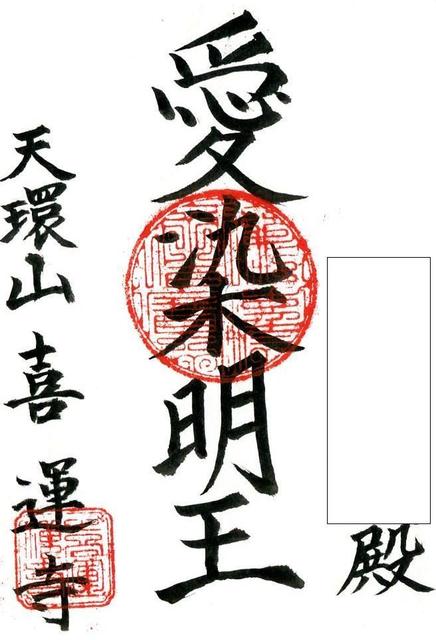 殿
愛染明王
天環山喜運寺